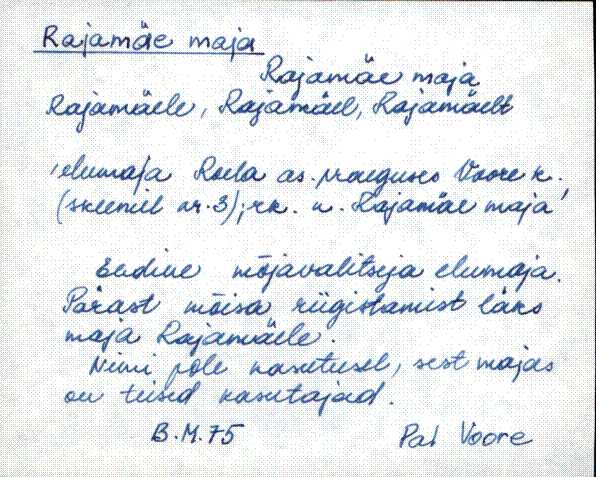 Rajamäe maja
Rajamäe maja
Rajamäele, Rajamäel, Rajamäelt
'elumaja Roela as. praeguses Voore k.
(skeemil nr. 3); rk. n. Rajamäe maja'
Endine mõjavalitseja elumaja.
Pärast mõisa riigistamist läks
maja Rajamäele.
Nimi pole kasutusel, sest majas
on teised kasutajad.
B.M. 75
Pal Voore